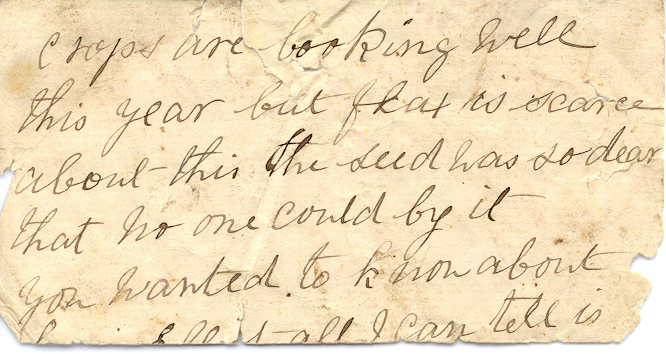 crops are looking well
this year but flax is scarce
about this the seed was so dear
that no one could by it
you wanted to know about
all I can tell is